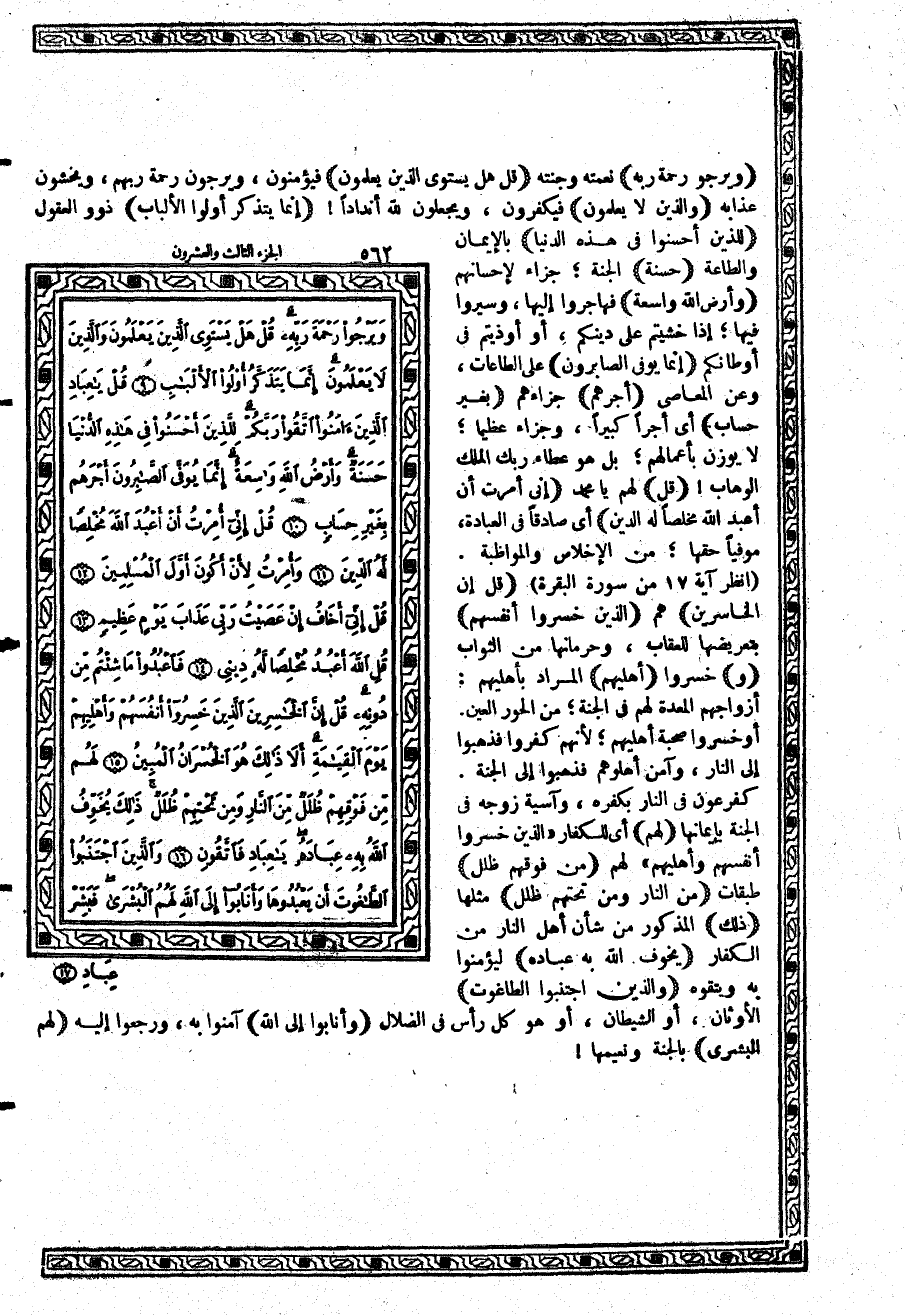 (ويرجو رحمة ربه) نعمته وجنته (قل هل يستوى الذين يعلمون) فيؤمنون ، ويرجون رحمة ربهم ، ويخشون
عذابه (والذين لا يعلمون) فيكفرون ، ويجعلون لله أنداداً ! (إنما يتذكر أولوا الألباب) ذوو العقول
(للذين أحسنوا فى هـذه الدنيا) بالإيمـان
والطاعة (حسنة) الجنة ؛ جزاء لإحسانهم
(وأرض الله واسعة) فهاجروا إليها ، وسيروا
فيها ؛ إذا خشيتم على دينكم ، أو أوذيتم فى
أوطانكم (إنما يوفى الصابرون) على الطاعات ،
وعن المعـاصى (أجرهم) جزاءهم (بغـير
حساب) أى أجراً كبيراً ، وجزاء عظيما ؛
لا يوزن بأعمالهم ؛ بل هو عطاء ربك الملك
الوهاب ! (قل) لهم يا محمد (إنى أمرت أن
أعبد الله مخلصاً له الدين) أى صادقاً فى العبادة،
موفياً حقها ؛ من الإخلاص والمواظبة .
(انظر آية ١٧ من سورة البقرة) (قل إن
الخاسرين) هم (الذين خسروا أنفسهم)
بتعريضها للعقاب ، وحرمانها من الثواب
(و) خسروا (أهليهم) المـراد بأهليهم :
أزواجهم المعدة لهم فى الجنة ؛ من الحور العين.
أو خسروا صحبة أهليهم ؛ لأنهم كفروا فذهبوا
إلى النار ، وآمن أهلوهم فذهبوا إلى الجنة .
كفرعون فى النار بكفره ، وآسية زوجه فى
الجنة بإيمانها (لهم) أى للكفار «الذين خسروا
أنفسهم وأهليهم» لهم (من فوقهم ظلل)
طبقات (من النار ومن تحتهم ظلل) مثلها
(ذلك) المذكور من شأن أهل النار من
الـكفار (يخوف الله به عبـاده) ليؤمنوا
به ويتقوه (والذين اجتنبوا الطاغوت)
الأوثان ، أو الشيطان ، أو هو كل رأس فى الضلال (وأنابوا إلى الله) آمنوا به ، ورجعوا إليـه (لهم
البشرى) بالجنة ونعيمها !
٥٦٢ الجزء الثالث والعشرون
وَيَرْجُواْ رَحْمَةَ رَبِّهِۦ ۗ قُلْ هَلْ يَسْتَوِى ٱلَّذِينَ يَعْلَمُونَ وَٱلَّذِينَ
لَا يَعْلَمُونَ ۗ إِنَّمَا يَتَذَكَّرُ أُوْلُواْ ٱلْأَلْبَٰبِ ۝٩ قُلْ يَٰعِبَادِ
ٱلَّذِينَ ءَامَنُواْ ٱتَّقُواْ رَبَّكُمْ ۚ لِلَّذِينَ أَحْسَنُواْ فِى هَٰذِهِ ٱلدُّنْيَا
حَسَنَةٌ ۗ وَأَرْضُ ٱللَّهِ وَٰسِعَةٌ ۗ إِنَّمَا يُوَفَّى ٱلصَّٰبِرُونَ أَجْرَهُم
بِغَيْرِ حِسَابٍ ۝١٠ قُلْ إِنِّىٓ أُمِرْتُ أَنْ أَعْبُدَ ٱللَّهَ مُخْلِصًا
لَّهُ ٱلدِّينَ ۝١١ وَأُمِرْتُ لِأَنْ أَكُونَ أَوَّلَ ٱلْمُسْلِمِينَ ۝١٢
قُلْ إِنِّىٓ أَخَافُ إِنْ عَصَيْتُ رَبِّى عَذَابَ يَوْمٍ عَظِيمٍ ۝١٣
قُلِ ٱللَّهَ أَعْبُدُ مُخْلِصًا لَّهُۥ دِينِى ۝١٤ فَٱعْبُدُواْ مَا شِئْتُم مِّن
دُونِهِۦ ۗ قُلْ إِنَّ ٱلْخَٰسِرِينَ ٱلَّذِينَ خَسِرُوٓاْ أَنفُسَهُمْ وَأَهْلِيهِمْ
يَوْمَ ٱلْقِيَٰمَةِ ۗ أَلَا ذَٰلِكَ هُوَ ٱلْخُسْرَانُ ٱلْمُبِينُ ۝١٥ لَهُم
مِّن فَوْقِهِمْ ظُلَلٌ مِّنَ ٱلنَّارِ وَمِن تَحْتِهِمْ ظُلَلٌ ۚ ذَٰلِكَ يُخَوِّفُ
ٱللَّهُ بِهِۦ عِبَادَهُۥ ۚ يَٰعِبَادِ فَٱتَّقُونِ ۝١٦ وَٱلَّذِينَ ٱجْتَنَبُواْ
ٱلطَّٰغُوتَ أَن يَعْبُدُوهَا وَأَنَابُوٓاْ إِلَى ٱللَّهِ لَهُمُ ٱلْبُشْرَىٰ ۚ فَبَشِّرْ
عِبَادِ ۝١٧